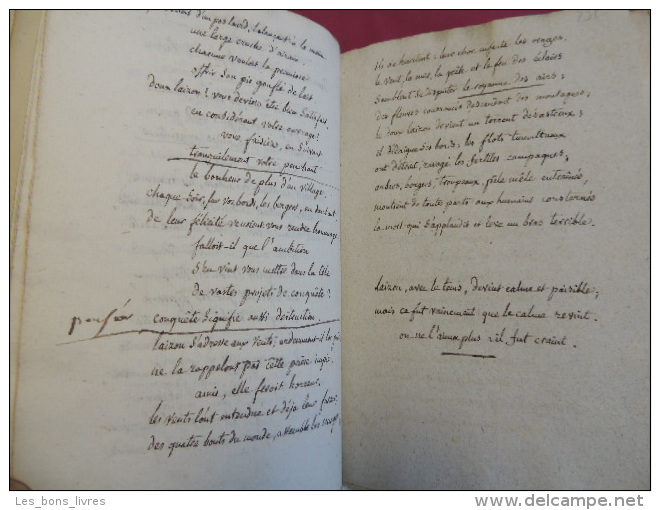 d'un pas lourd, balançant à la main
une large cruche d'airain.
chacune voulait la première
offrir son pis gonflé de lait
doux laizon! vous deviez être bien satisfait,
en considérant votre ouvrage!
vous faisiez, en suivant
tranquillement votre penchant
le bonheur de plus d'un village.
chaque soir, sur vos bords, les bergers, en dansant,
de leur félicité venoient vous rendre hommage
falloit-il que l'ambition
s'en vint vous mettre dans la tête
de vastes projets de conquête?
conquête signifie aussi destruction.
laizon s'adresse aux vents;
ne la rappelons pas cette prière impie
amis, elle feroit horreur.
les vents l'ont entendue et déja leur fureur
des quatre bouts du monde, assemble les nuages
ils se heurtent: leur choc enfante les orages.
le vent, la mer, la grêle et le feu des éclairs
semblent se disputer le royaume des airs;
des fleuves courroucés descendent des montagnes;
le doux laizon devient un torrent désastreux;
il s'élargit ses bords; les flots tumultueux
ont détruit, ravagé les fertiles campagnes;
arbres, bergers, troupeaux, pêle mêle entraînés,
montrent de toute parts aux humains consternés
la mort qui s'applaudit et lève un bras terrible.
laizon, avec le tems, devint calme et paisible;
mais ce fut vainement que le calme revint.
on ne l'aima plus: il fut craint.
Les_bons_livres
www.delcampe.net